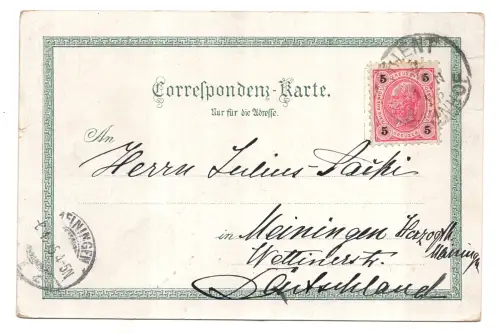 Correspondenz-Karte.
Nur für die Adresse.
5 5
5 5
An
Herrn Julius
in Meiningen Herzogth.
Meiningen
Wettinerstr
Deutschland
MEININGEN